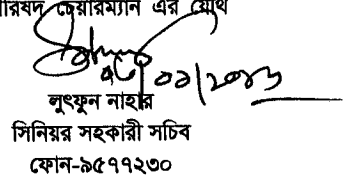 পরিষদ চেয়ারম্যান এর যৌথ
লুৎফুন নাহার
সিনিয়র সহকারী সচিব
ফোন-৯৫৭৭২৩০